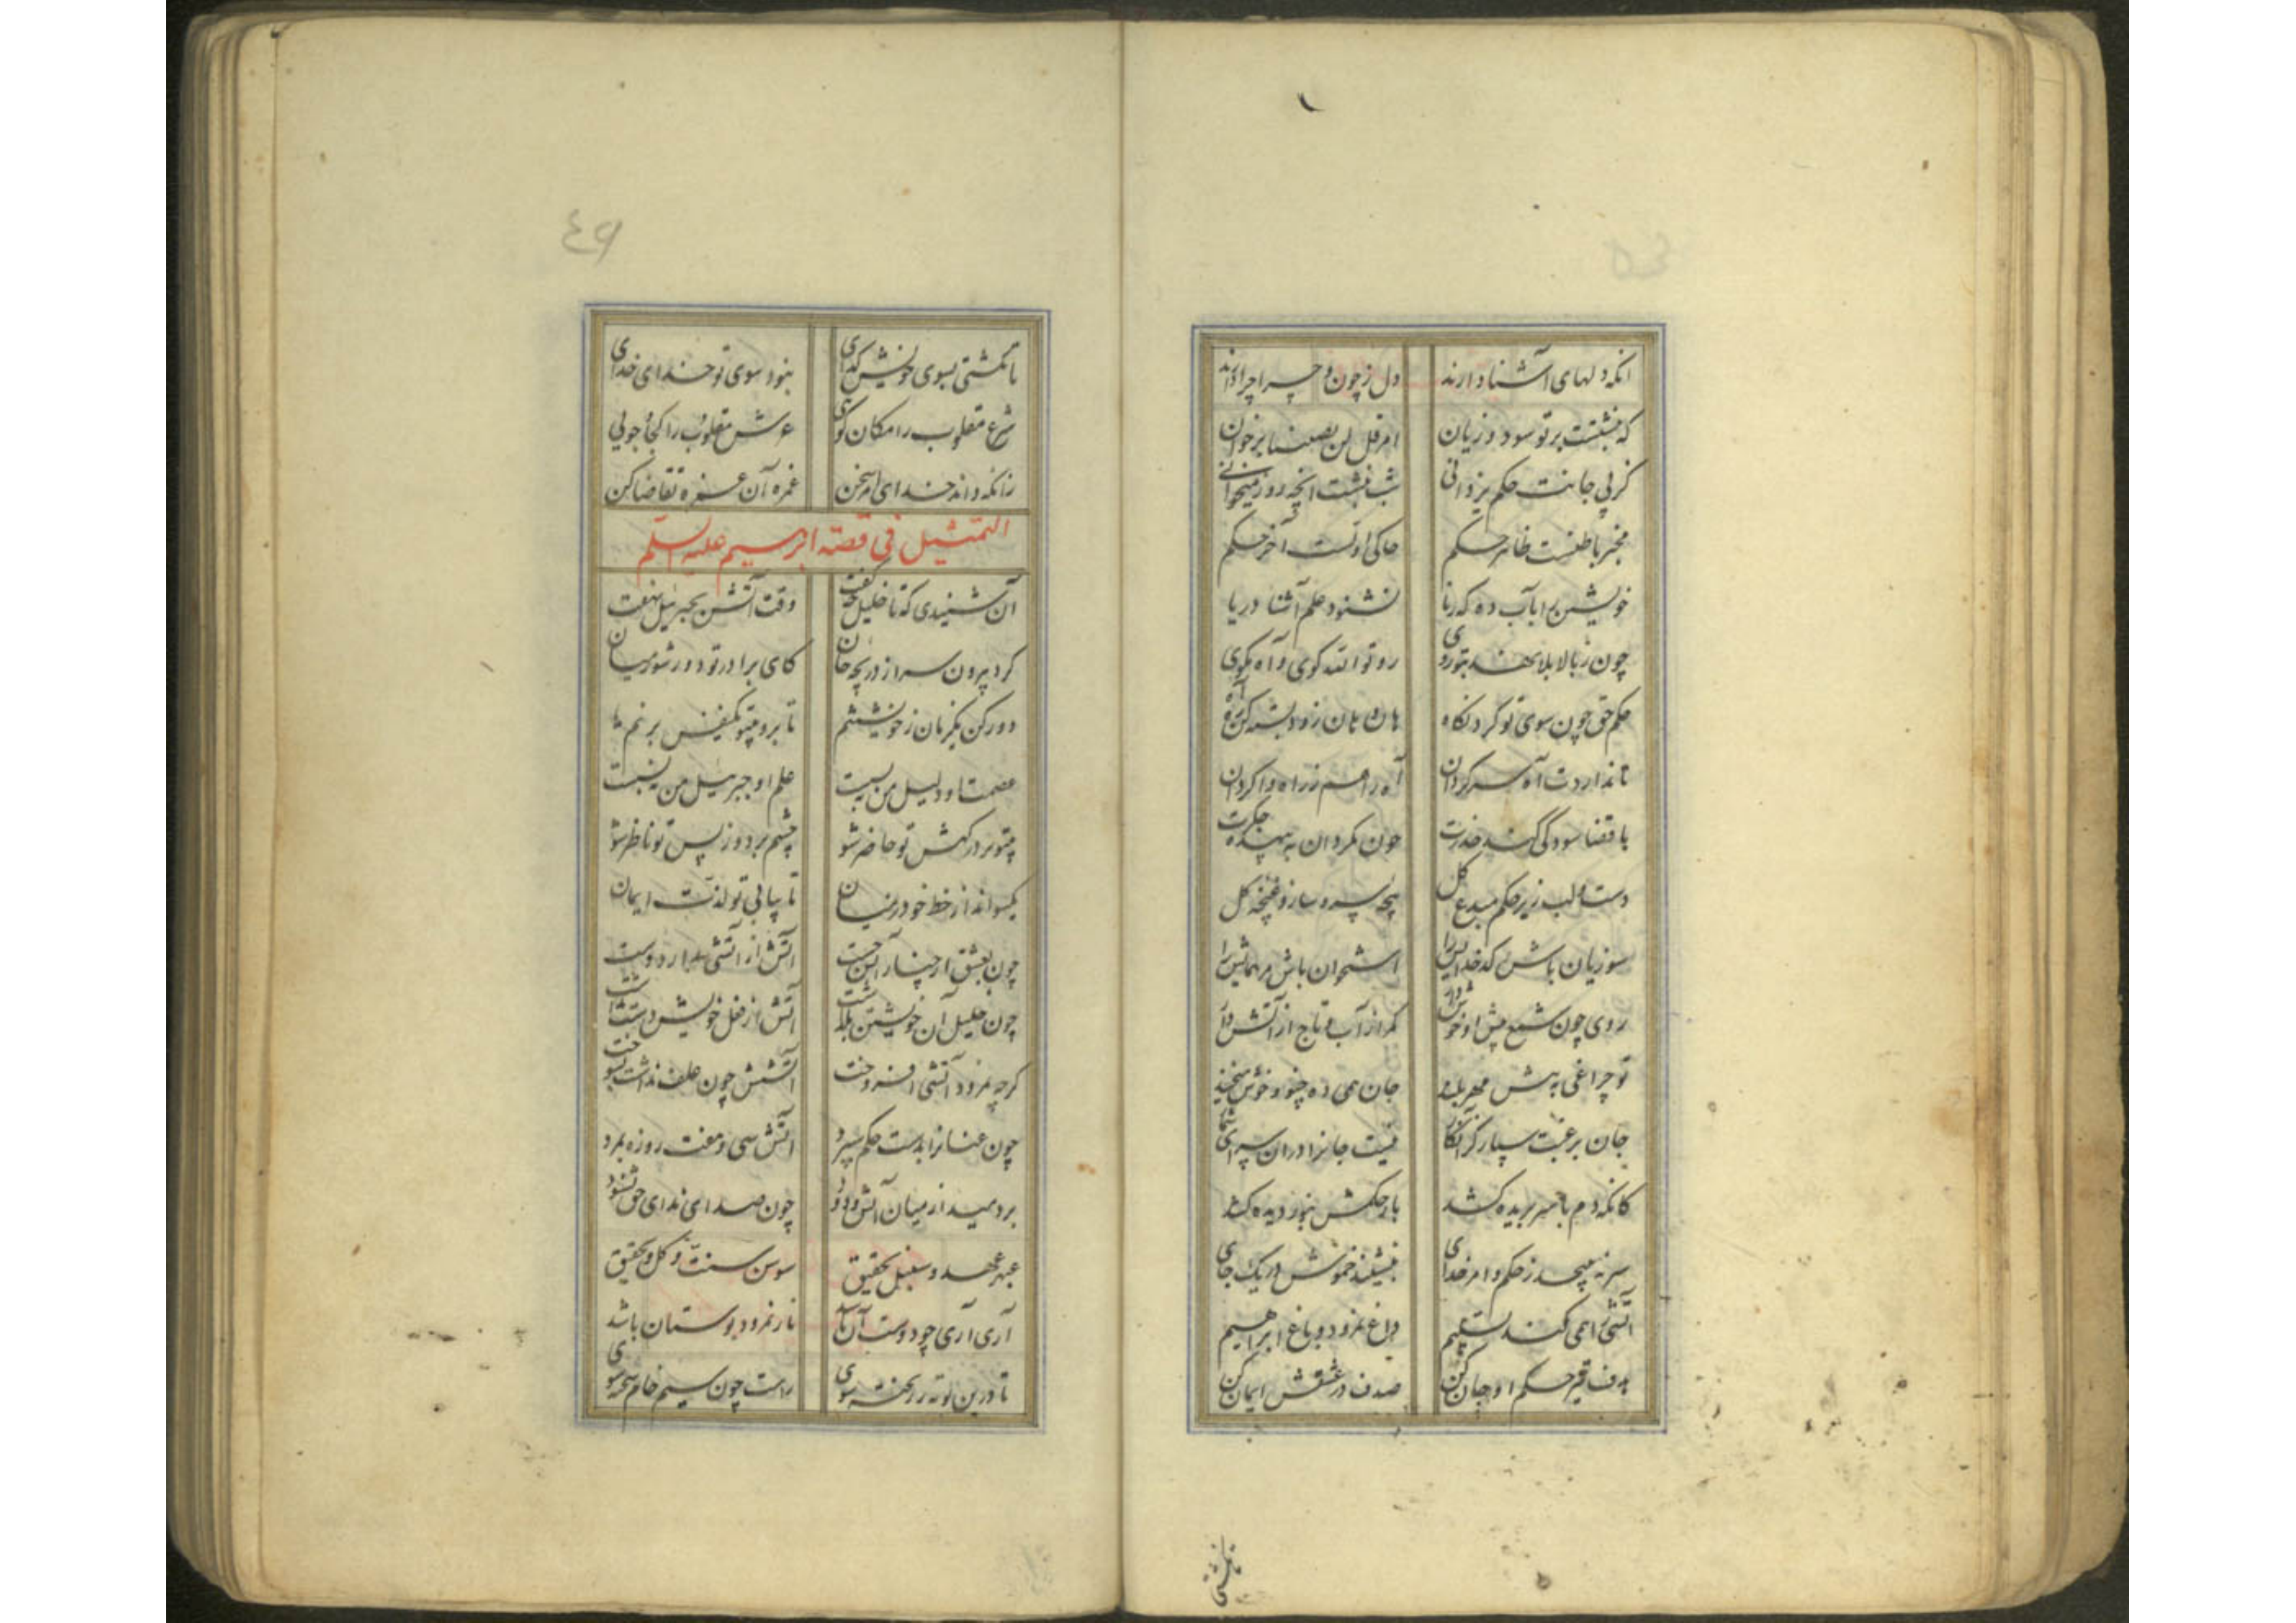 انکه دلهای آشنا دارند دل ز چون و چرا جدا دارند
که نبشتست بر تو سود و زیان امر قل لن یصیبنا برخوان
کز پی جانت حکم یزدانی شب نبشت انچه روز میخوانی
مخبر باطنست ظاهر حکم حاکی اولست آخر حکم
خویشتن را بآب ده که زنا نشنود علم آشنا دریا
چون ز بالا بلا نهد بتو روی رو تو الله کوی و آه مکوی
حکم حق چون سوی تو کرد نکاه هان و هان زود بسته کن ره آه
تا نداردت آه سرکردان آه را هم ز راه واکردان
با قضا سود کی کند حذرت خون مکردان به بیهده جکرت
دست و لب زیر حکم مبدع کل پنجه سرو ساز و غنچه کل
سوزیان باش کدخدایش را استخوان باش مر همایش را
روی چون شمع پیش او خوش دار کمر از آب و تاج از آتش دار
تو چراغی به پیش مهر بلند جان همی ده چنو و خوش میخند
جان برغبت سپار کز انکار
کانکه دم با سر بریده کشد بار حکمش بنور دیده کشد
سر نه پیچد ز حکم و امر خدای بنشیند خموش در یک جای
آتشی را همی کند تسلیم داغ نمرود و باغ ابراهیم
هدف تیر حکم او جان کن صدف در عشقش ایمان کن
تانکشتی
٤٩
تا نکشتی بسوی خویش کدای نبود سوی تو خدای خدای
شرع مقلوب را مکان کوی عرش مقلوب را کجا جویی
زانکه داند خدای امر سخن غمزه آن غمزه تقاضا کن
التمثیل فی قصة ابرهیم علیه السلم
آن شنیدی که تا خلیل چه کفت وقت آتش بجبرئیل نهفت
کرد بیرون سر از دریچه جان کای برادر تو دور شو ز میان
دور کن یکزمان ز خویشتنم تا برو بیتو یکنفس بزنم
عصمت او دلیل من نه بسست علم او جبرئیل من نه بسست
بیتو بر درکهش تو حاضر شو چشم بردوز پس تو ناظر شو
یکسو انداز حظ خود ز میان تا بیابی تو لذت ایمان
چون بعشق از چنار آتش جست آتش از آتشی بدارد دست
چون خلیل آن خویشتن بکذاشت آتش از فعل خویش دست بداشت
کرچه نمرود آتشی افروخت آتشش چون علف نداشت نسوخت
چون عنانرا بدست حکم سپرد آتش سی و هفت روزه بمرد
بردمید از میان آتش و دود چون صدای ندای حق بشنود
عبهر عهد و سنبل تحقیق سوسن سنت و کل توفیق
آری آری چو دوست آن باشد نار نمرود بوستان باشد
تا درین بوته ریخته شوی راست چون سیم خام سخته شوی